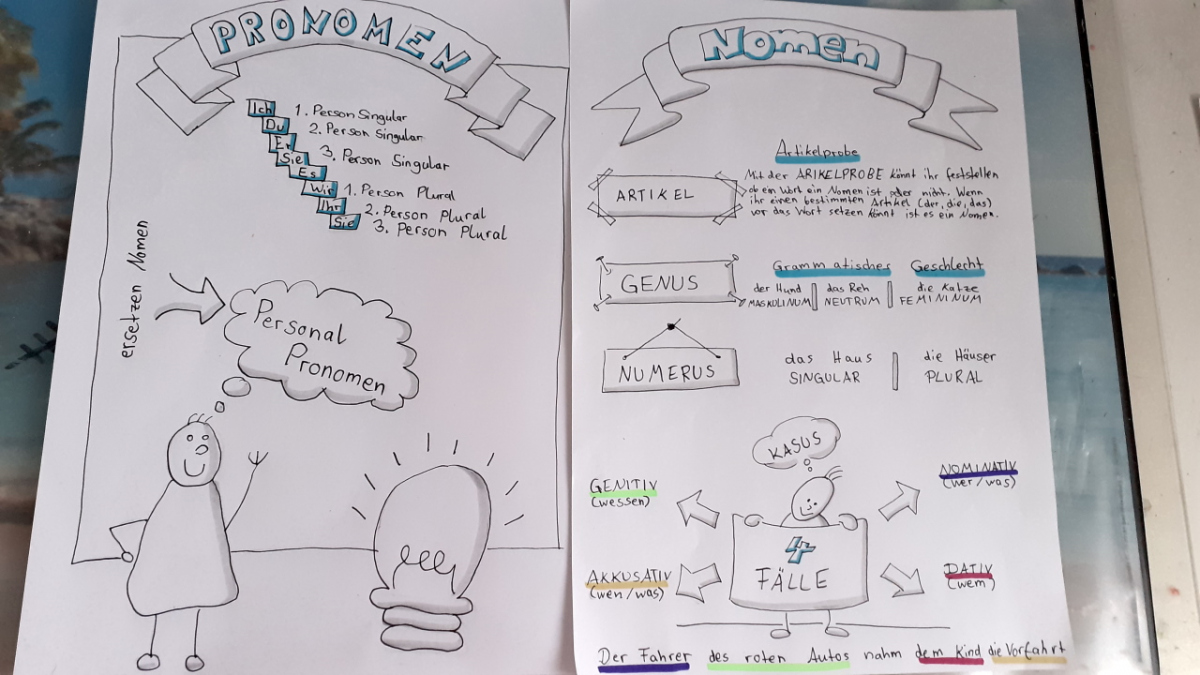 PRONOMEN
Ich 1. Person Singular
Du 2. Person Singular
Er
Sie 3. Person Singular
Es
Wir 1. Person Plural
Ihr 2. Person Plural
Sie 3. Person Plural
ersetzen Nomen
Personal
Pronomen
Nomen
Artikelprobe
ARTIKEL
Mit der ARIKELPROBE könnt ihr feststellen
ob ein Wort ein Nomen ist oder nicht. Wenn
ihr einen bestimmten Artikel (der, die, das)
vor das Wort setzen könnt ist es ein Nomen.
GENUS
Grammatisches Geschlecht
der Hund das Reh die Katze
MASKOLINUM NEUTRUM FEMININUM
NUMERUS
das Haus die Häuser
SINGULAR PLURAL
KASUS
GENITIV
(wessen)
NOMINATIV
(wer/was)
4
FÄLLE
AKKUSATIV
(wen/was)
DATIV
(wem)
Der Fahrer des roten Autos nahm dem Kind die Vorfahrt